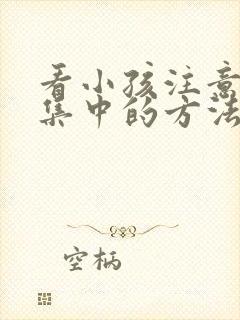 看小孩注意
集中的方法
空柄